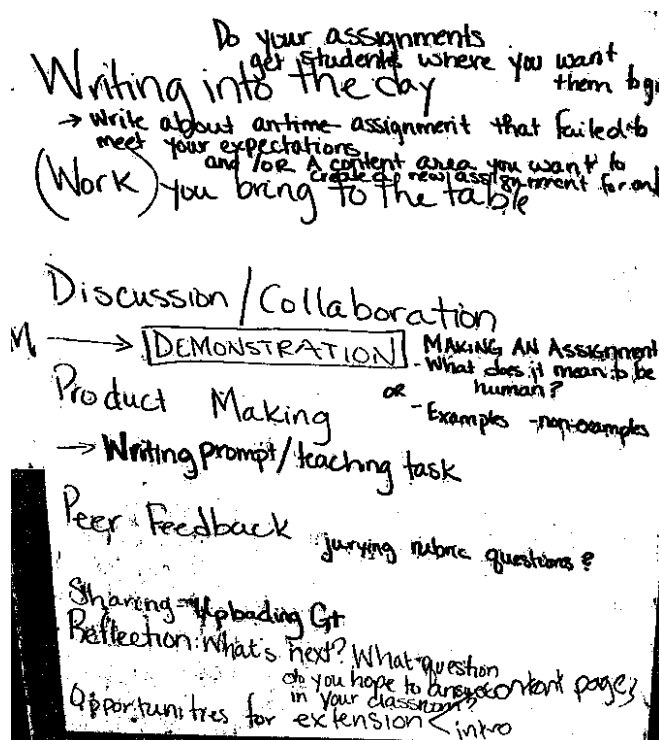 Do your assignments
get students where you want
them to go
Writing into the day
→ Write about an time assignment that failed to
meet your expectations
and/or A content area you want to
create a new assignment for and
(Work) you bring to the table
Discussion/Collaboration
→ DEMONSTRATION
MAKING AN ASSIGNMENT
- What does it mean to be
human?
OR
- Examples - non-examples
Product Making
→ Writing prompt/teaching task
Peer Feedback jurying rubric questions?
Sharing - Uploading
Reflection: What's next? What question
do you hope to answer
in your classroom?
content page
Opportunities for extension < intro